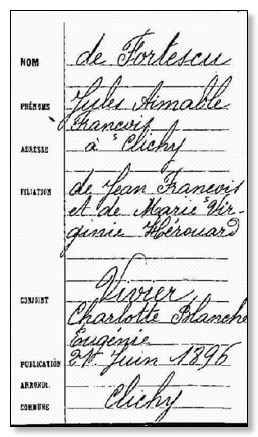 NOM de Fortescu
PRÉNOMS Jules Aimable
François
ADRESSE à Clichy
FILIATION de Jean François
et de Marie Vir-
ginie Hérouard
CONJOINT Vivier
Charlotte Blanche
Eugénie
PUBLICATION 21 Juin 1896
ARRONDI.
COMMUNE Clichy